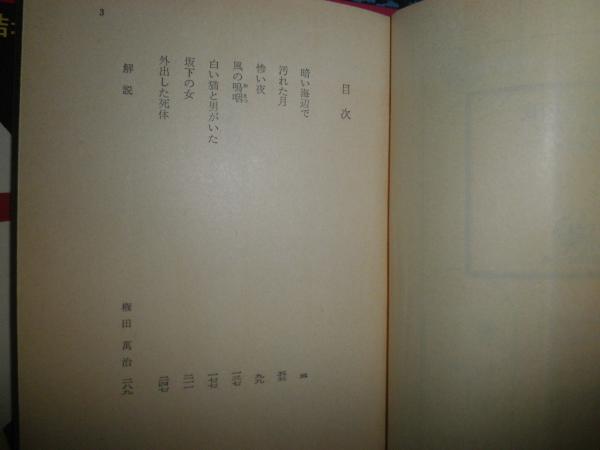 目次
暗い海辺で
汚れた月
惨い夜 九九
風の嗚咽 一三七
白い猫と男がいた 一七七
坂下の女 二一一
外出した死体 二四七
解説 権田萬治 二八九
3